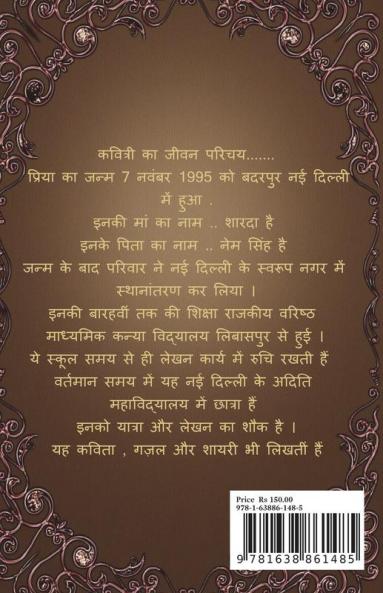 कवित्री का जीवन परिचय.......
प्रिया का जन्म 7 नवंबर 1995 को बदरपुर नई दिल्ली
में हुआ .
इनकी मां का नाम .. शारदा है
इनके पिता का नाम .. नेम सिंह है
जन्म के बाद परिवार ने नई दिल्ली के स्वरूप नगर में
स्थानांतरण कर लिया ।
इनकी बारहवीं तक की शिक्षा राजकीय वरिष्ठ
माध्यमिक कन्या विद्यालय लिबासपुर से हुई ।
ये स्कूल समय से ही लेखन कार्य में रुचि रखती हैं
वर्तमान समय में यह नई दिल्ली के अदिति
महाविद्यालय में छात्रा हैं
इनको यात्रा और लेखन का शौक है ।
यह कविता , गज़ल और शायरी भी लिखतीं हैं
Price Rs 150.00
978-1-63886-148-5
9 781638 861485